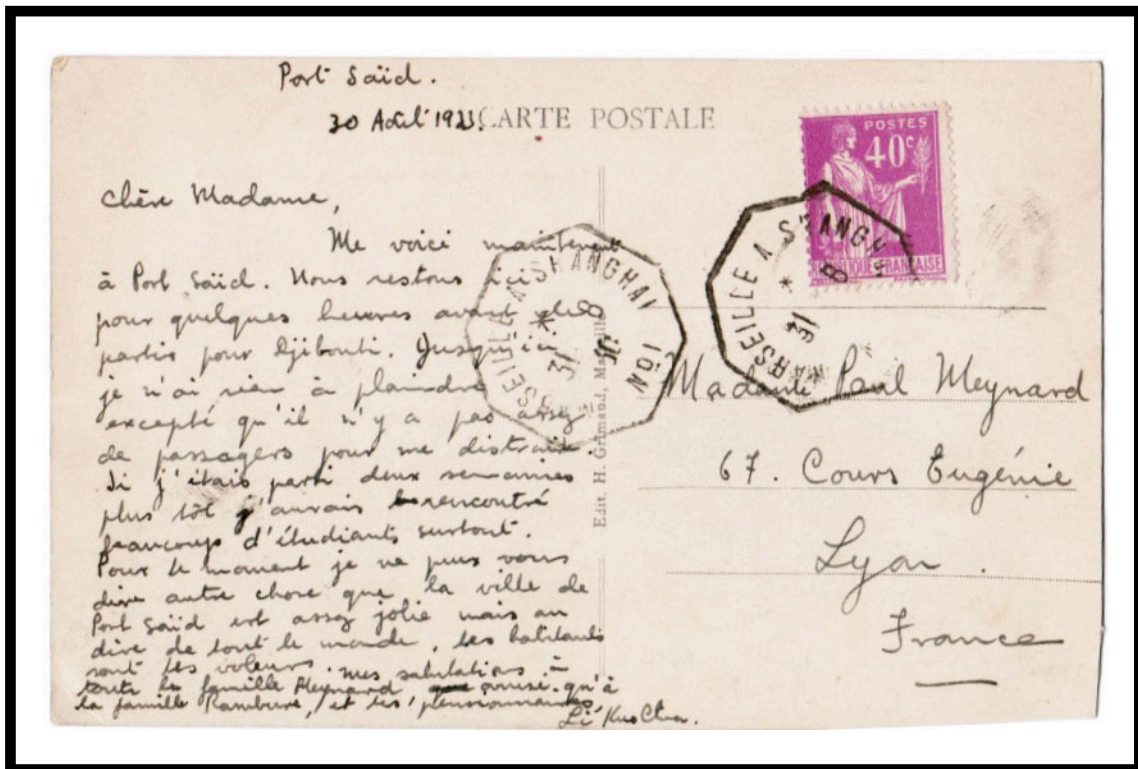 Port Saïd.
30 Août 193
CARTE POSTALE
POSTES
40c
RÉPUBLIQUE FRANÇAISE
Chère Madame,
Me voici maintenant
à Port Saïd. Nous restons ici
pour quelques heures avant de
partir pour Djibouti. Jusqu'ici
je n'ai rien à plaindre
excepté qu'il n'y a pas assez
de passagers pour me distraire.
Si j'étais parti deux semaines
plus tôt j'aurais rencontré
beaucoup d'étudiants surtout.
Pour le moment je ne puis vous
dire autre chose que la ville de
Port Saïd est assez jolie mais au
dire de tout le monde, les habitants
sont des voleurs. mes salutations à
toute la famille Meynard qu'à
la famille et les pensionnaires
MARSEILLE A SHANGHAI
31
8
MARSEILLE A SHANGHAI
31
8
Edit. H. Grimaud, Marseille
Madame Paul Meynard
67. Cours Eugénie
Lyon.
France